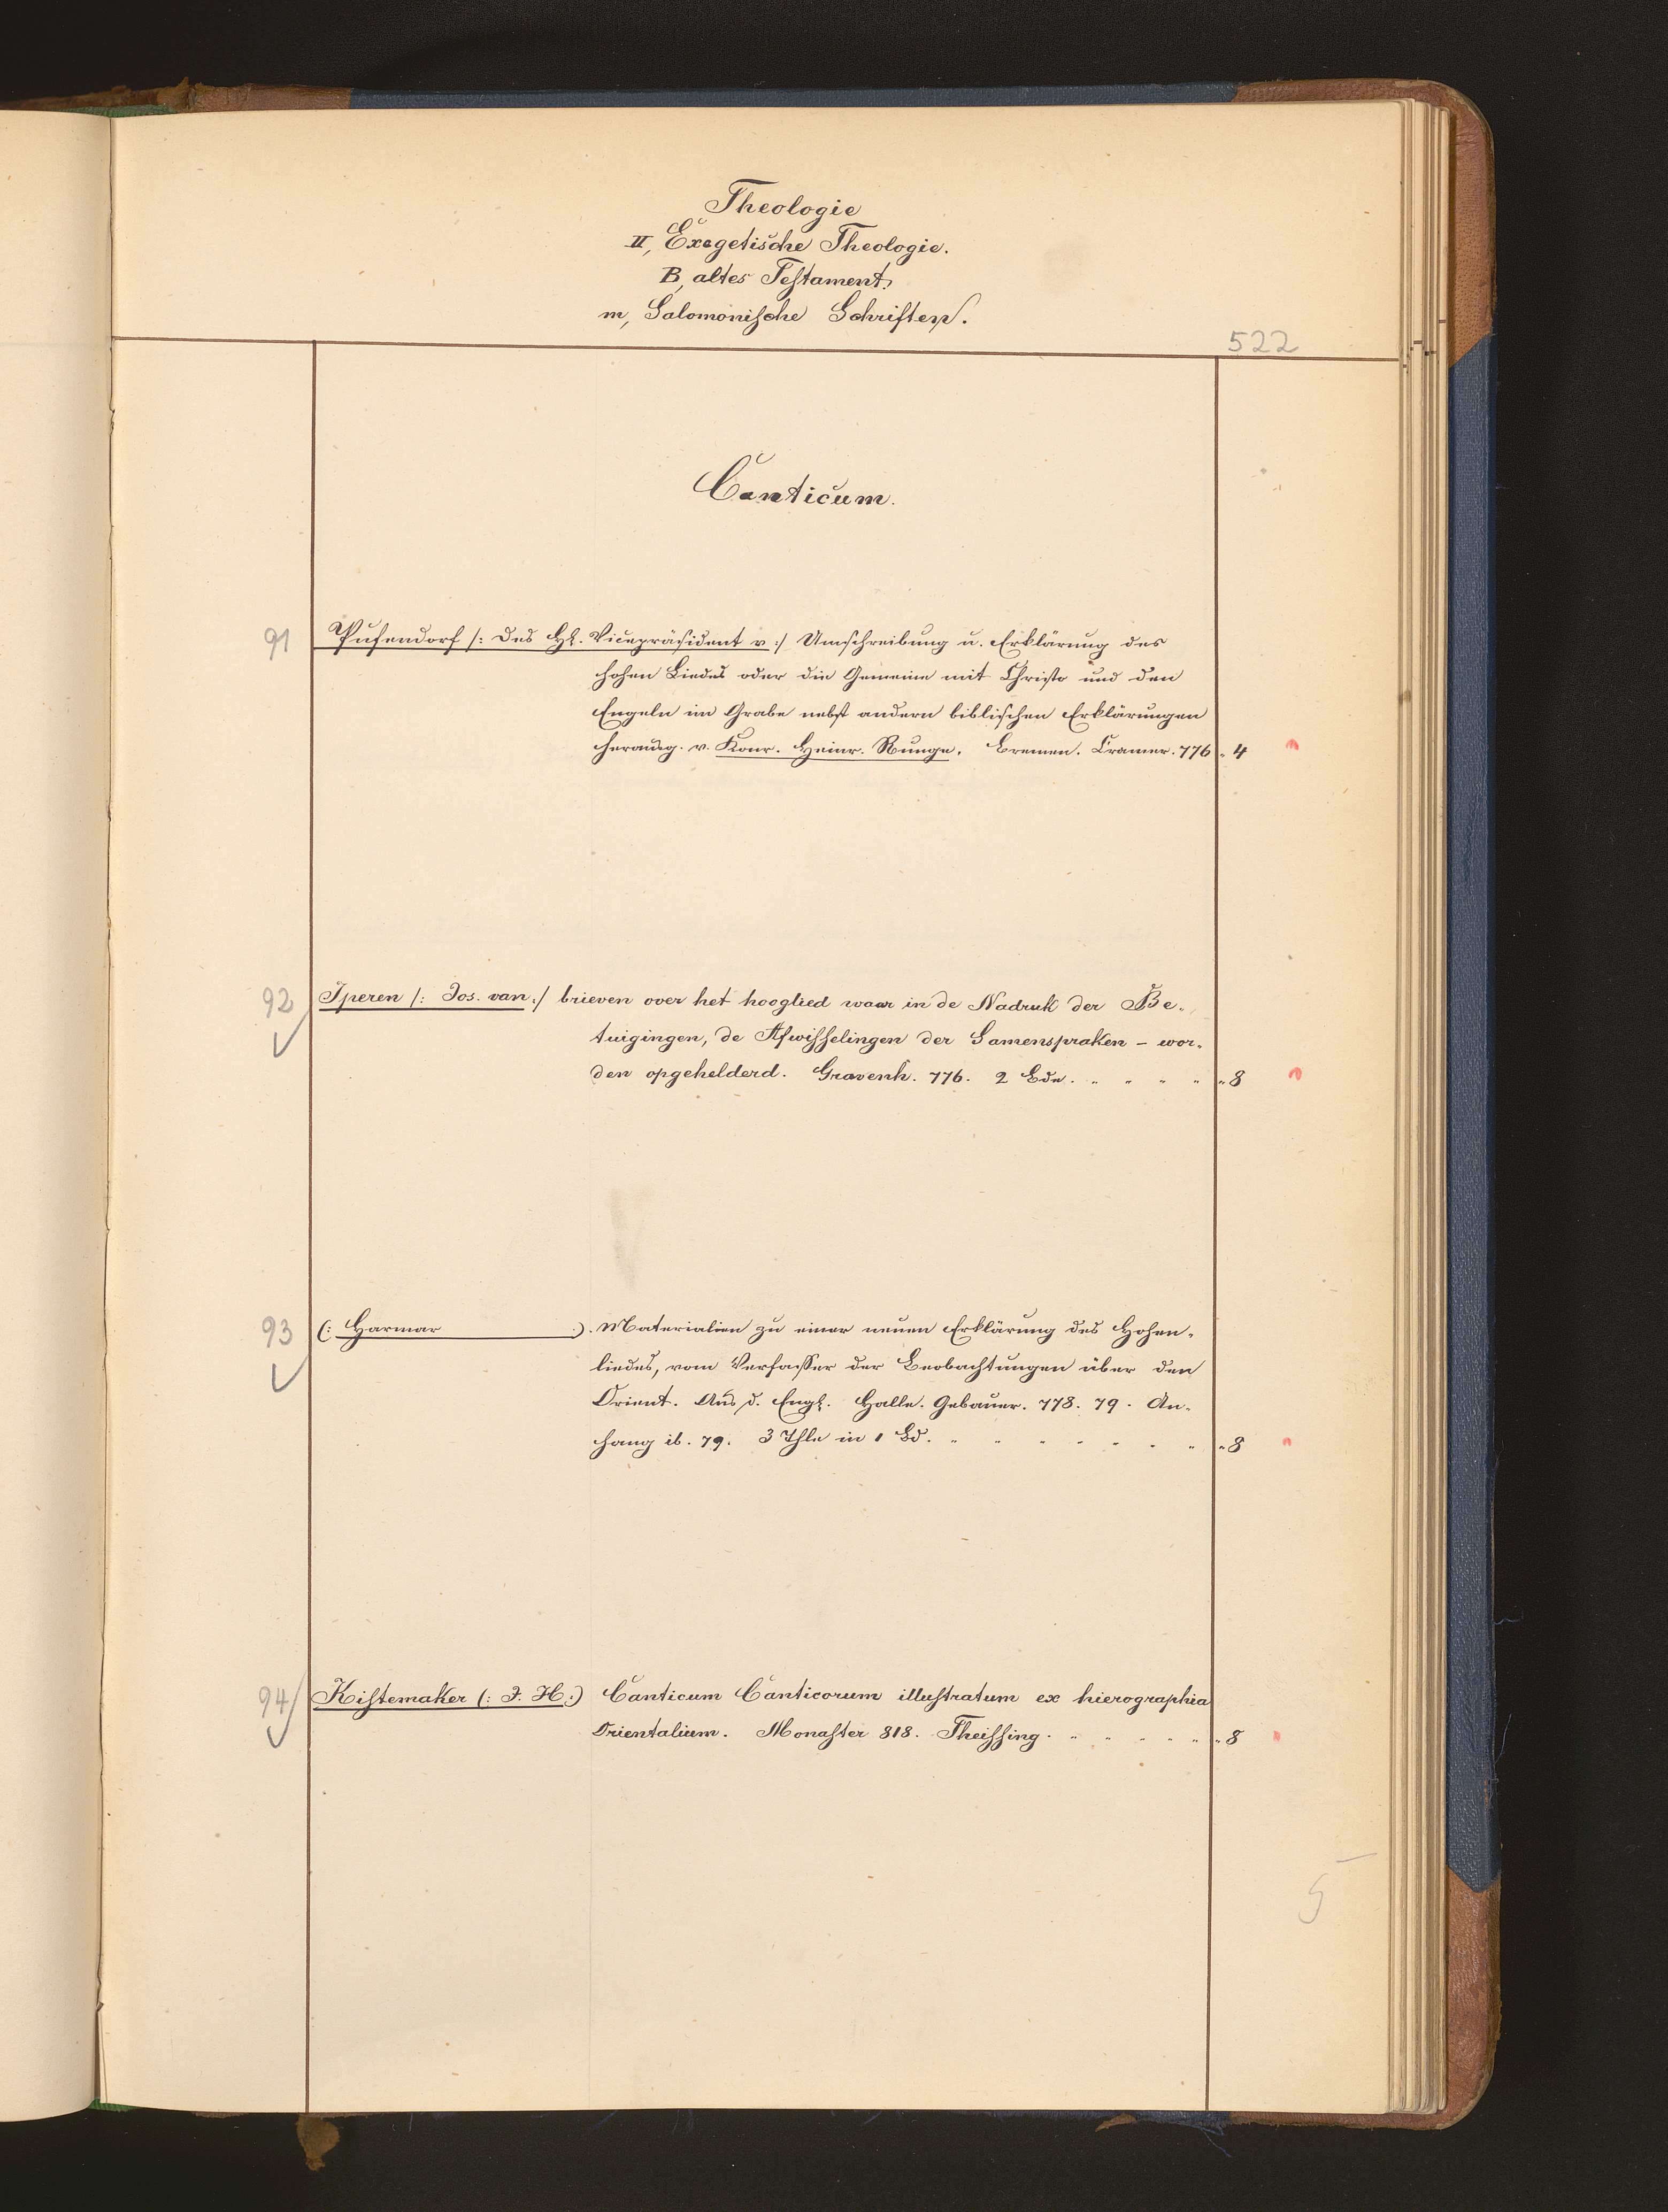 Theologie
II, Exegetische Theologie.
B, altes Testament.
m, Salomonische Schriften.
522
Canticum.
91 Pufendorf /: des Hℓ. Vicepräsident v :/ Umschreibung u. Erklärung des
hohen Liedes oder die Gemeine mit Christo und den
Engeln im Grabe nebst andern biblischen Erklärungen
herausg. v. Konr. Heinr. Runge. Bremen. Cramer. 776 „ 4
92 Iperen /: Jos. van :/ brieven over het hooglied waar in de Nadruk der Be-
tuigingen, de Afwisselingen der Samenspraken - wor-
den opgehelderd. Gravenh. 776. 2 Bde. „ „ „ „ „ 8
93 (: Harmar :). Materialien zu einer neuen Erklärung des Hohen-
liedes, vom Verfasser der Beobachtungen über den
Orient. Aus d. Engl. Halle. Gebauer. 778. 79. An-
hang ib. 79. 3 Thle in 1 Bd. „ „ „ „ „ „ „ „ 8
94 Kistemaker (: J. H :) Canticum Canticorum illustratum ex hierographia
Orientalium. Monaster 818. Theissing. „ „ „ „ „ „ 8
5